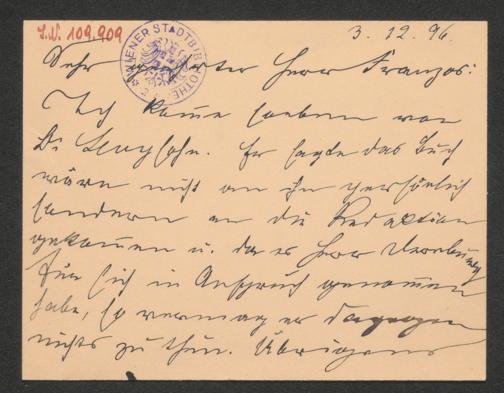 I.N. 109.909
WIENER STADTBIBLIOTHEK
3. 12. 96.
Sehr geehrter Herr Franzos!
Ich komme soeben von
Dr. Levysohn. Er sagte das Buch
wäre nicht an ihn persönlich
sondern an die Redaktion
gekommen u. da es Herr
für sich in Anspruch genommen
habe, so vermag er dagegen
nichts zu thun. Übrigens